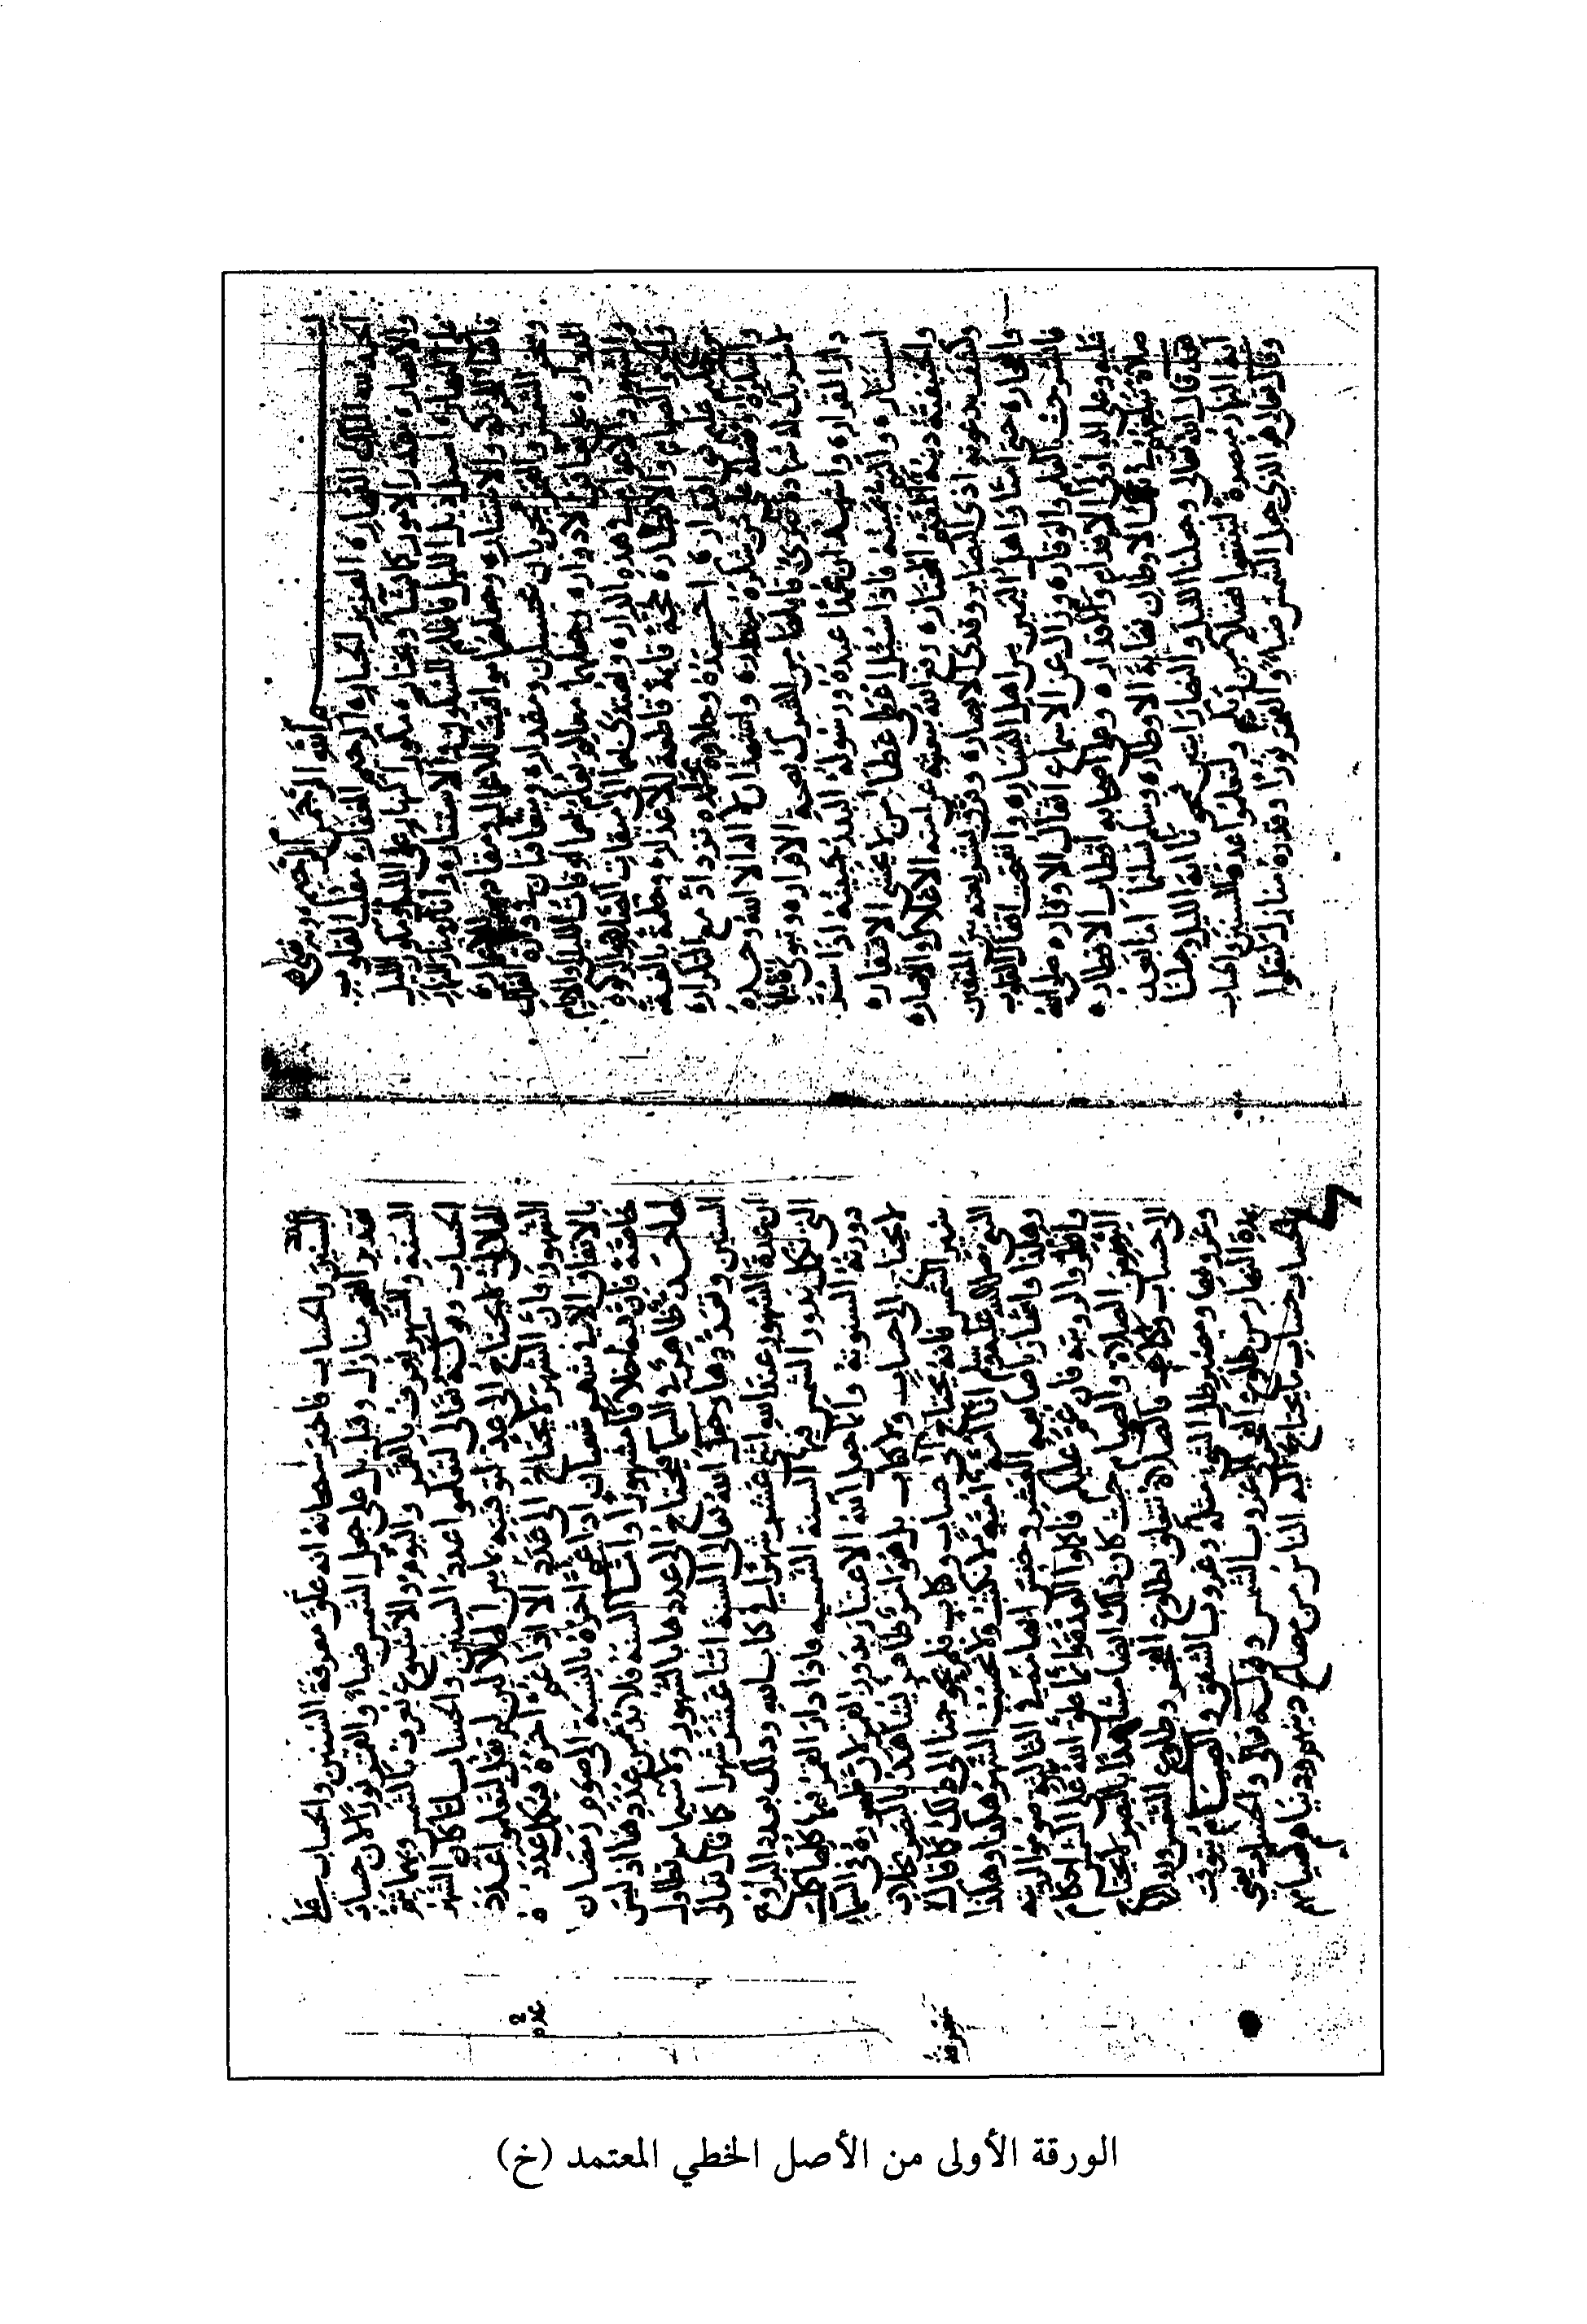 بسم الله الرحمن الرحيم
الحمد لله الملك القهار العزيز الجبار الرحيم الغفار مقلب القلوب
والابصار مقدر الامور كما يشاء ويختار مكور النهار على الليل ومكور الليل
على النهار اسبل ذيل الليل فاظلم للسكون والاستتار وانار منار النهار
فاضاء للحركة والانتشار وجعلهما مواقيت للاعمال ومقادير للاعمار
وسخر الشمس والقمر يجريان بحسبان ومقدار ويعتقبان في دارة الفلك
الدوار على تعاقب الادوار وجعلهما معالم يعلم بهما اوقات الليالي والايام
والشهور والاعوام في هذه الدار ويهتدى بهما الى ميقات الصلاة والزكاة
والحج والصيام والافطار حجة قائمة قاطعة للاعذار وحكمة بالغة
من حكيم عليم ذي اقتدار احمده وحلاوة محامده تزداد مع التكرار
واشكره وفضله على من شكره مدرار واشهد ان لا اله الا الله وحده
لا شريك له شهادة تبرئ قائلها من الشرك بصحة الاقرار وتبوئ قائلها
دار القرار واشهد ان محمدا عبده ورسوله البدر جبينه اذا سر
استنار واليم يمينه فاذا سئل اعطى عطاء من لا يخشى الاقتار
والحنيفية دينه القيم المختار رفع الله ببعثته عن امته الاغلال والاصار
وكشف بدعوته اذى البصائر وقذى الابصار وفرق بشريعته بين المتقين
والفجار حتى امتاز اهل اليمين من اهل اليسار وانفتحت اقفال القلوب
فانشرحت بالعلم والوقار وزال عن الاسماع اثقال الاوقار صلى الله
عليه وعلى اله اولي الاقدام والاقدار وعلى اصحابه اقطاب الاقطار
صلاة تبلغهم في تلك الاوطان نهاية الاوطار وسلم تسليما اما بعد
فقد قال الله تعالى وجعلنا الليل والنهار ايتين فمحونا اية الليل وجعلنا
اية النهار مبصرة لتبتغوا فضلا من ربكم ولتعلموا عدد السنين والحساب
وقال تعالى هو الذي جعل الشمس ضياء والقمر نورا وقدره منازل لتعلموا
عدد السنين والحساب فاخبر سبحانه انه علق معرفة السنين والحساب على
تقدير القمر منازل وقيل بل على جعل الشمس ضياء والقمر نورا لان حساب
السنة والشهر يعرف بالقمر واليوم والاسبوع يعرف بالشمس وبهما يتم
الحساب وقوله تعالى لتعلموا عدد السنين والحساب لما كان الشهر
الهلالي لا يحتاج الى عد لتوفيته بما بين الهلالين لم يقل لتعلموا عدد
الشهور فان الشهر لا يحتاج الى عدد الا اذا غم اخره فيكمل عدده
بالاتفاق الا في شهر شعبان اذا غم اخره بالنسبة الى صوم رمضان
خاصة فان فيه اختلافا مشهورا واما السنة فلا بد من عددها اذ ليس
لها حد ظاهر في السماء فيحتاج الى عددها بالشهور ولا سيما مع تطاول
السنين وتعددها وجعل الله تعالى السنة اثنا عشر شهرا كما قال تعالى
ان عدة الشهور عند الله اثنا عشر شهرا في كتاب الله وذلك بعدد البروج
التي تكمل بدور الشمس فيها السنة الشمسية فاذا دار القمر فيها كلها كملت
دورته السنوية وانما جعل الله الاعتبار بدور القمر لان ظهوره في السماء
لا يحتاج الى حساب ولا كتاب بل هو امر ظاهر يشاهد بالبصر بخلاف
سير الشمس فانه يحتاج الى حساب وكتاب فلم يحوجنا الى ذلك كما قال
النبي صلى الله عليه وسلم انا امة امية لا نكتب ولا نحسب الشهر هكذا وهكذا
وهكذا واشار باصابعه العشر وخنس ابهامه في الثالثة صوموا لرؤيته
وافطروا لرؤيته فان غم عليكم فاكملوا العدة وانما علق الله
الى حساب وكتاب فالصلاة تتعلق بطلوع الفجر وطلوع الشمس وزوالها
وغروبها ومصير ظل الشيء مثله وغروب الشفق والصيام يتوقت
بمدة النهار من طلوع الفجر الى غروب الشمس وقوله تعالى والحساب يعني
بالحساب حساب ما يحتاج اليه الناس من مصالح دينهم ودنياهم كصيامهم
الورقة الأولى من الأصل الخطي المعتمد (خ)